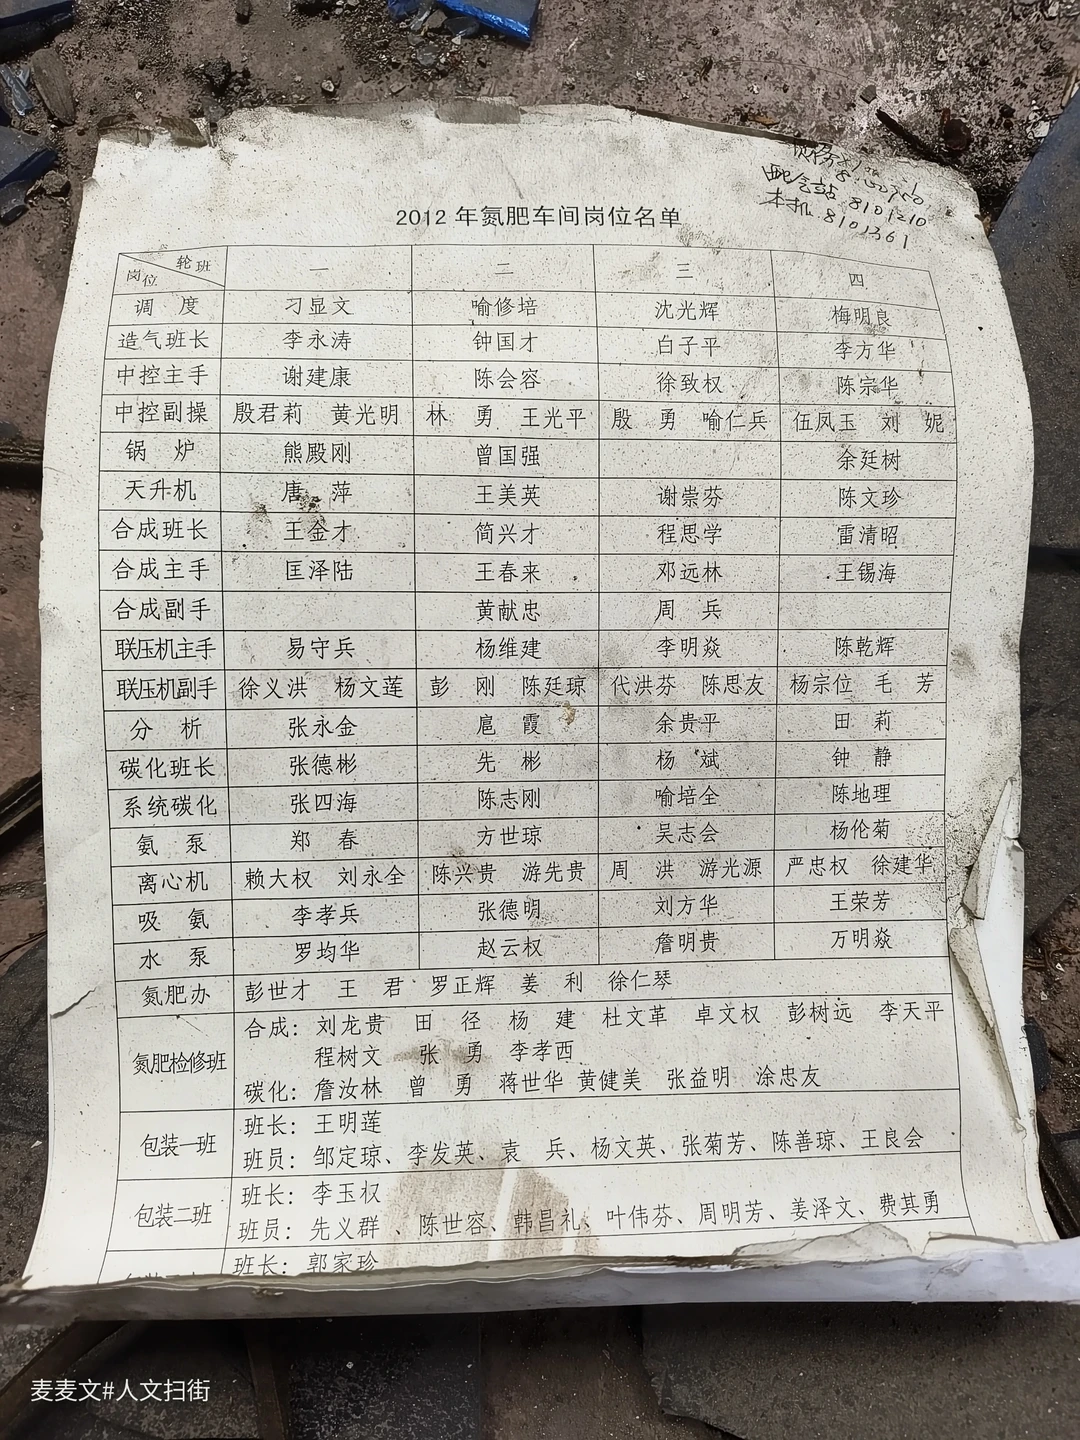 配气站 8101210
本机 8101361
2012 年氮肥车间岗位名单
岗位 轮班 一 二 三 四
调 度 刁显文 喻修培 沈光辉 梅明良
造气班长 李永涛 钟国才 白子平 李方华
中控主手 谢建康 陈会容 徐致权 陈宗华
中控副操 殷君莉 黄光明 林 勇 王光平 殷 勇 喻仁兵 伍凤玉 刘 妮
锅 炉 熊殿刚 曾国强 余廷树
天升机 唐 萍 王美英 谢崇芬 陈文珍
合成班长 王金才 简兴才 程思学 雷清昭
合成主手 匡泽陆 王春来 邓远林 王锡海
合成副手 黄献忠 周 兵
联压机主手 易守兵 杨维建 李明焱 陈乾辉
联压机副手 徐义洪 杨文莲 彭 刚 陈廷琼 代洪芬 陈思友 杨宗位 毛 芳
分 析 张永金 扈 霞 余贵平 田 莉
碳化班长 张德彬 先 彬 杨 斌 钟 静
系统碳化 张四海 陈志刚 喻培全 陈地理
氨 泵 郑 春 方世琼 吴志会 杨伦菊
离心机 赖大权 刘永全 陈兴贵 游先贵 周 洪 游光源 严忠权 徐建华
吸 氨 李孝兵 张德明 刘方华 王荣芳
水 泵 罗均华 赵云权 詹明贵 万明焱
氮肥办 彭世才 王 君 罗正辉 姜 利 徐仁琴
氮肥检修班 合成：刘龙贵 田 径 杨 建 杜文革 卓文权 彭树远 李天平
程树文 张 勇 李孝西
碳化：詹汝林 曾 勇 蒋世华 黄健美 张益明 涂忠友
包装一班 班长：王明莲
班员：邹定琼、李发英、袁 兵、杨文英、张菊芳、陈善琼、王良会
包装二班 班长：李玉权
班员：先义群 、陈世容、韩昌礼、叶伟芬、周明芳、姜泽文、费其勇
班长：郭家珍
麦麦文#人文扫街